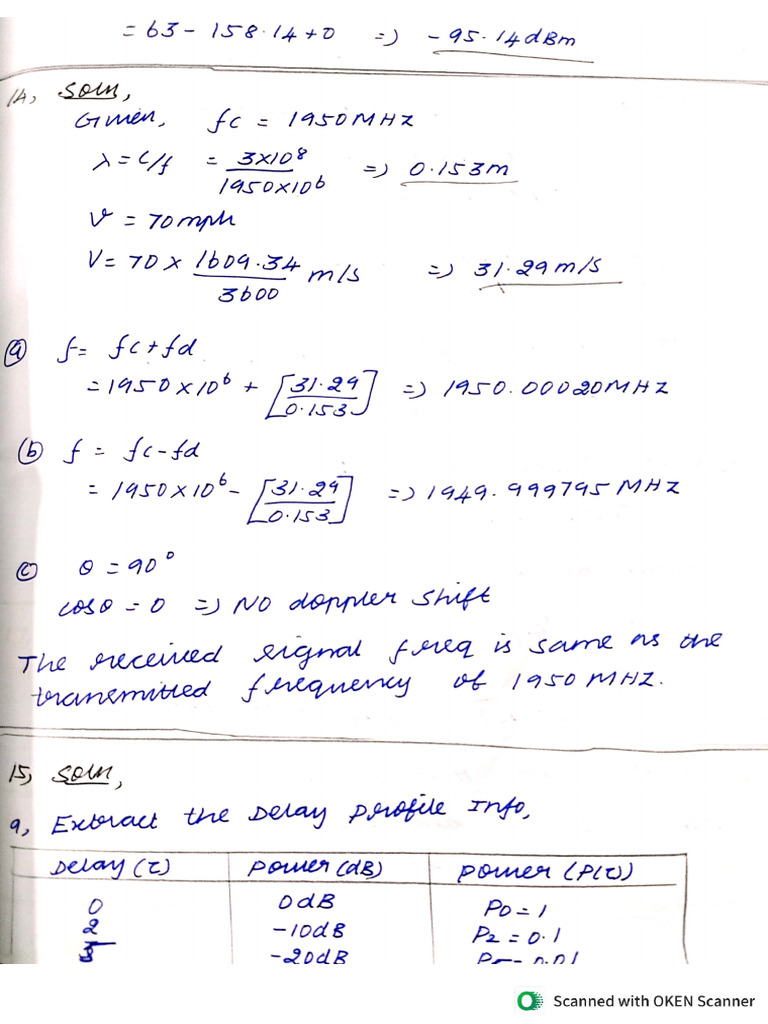 = 63 - 158.14 + 0 => -95.14 dBm
14, Soln,
Given, fc = 1950 MHz
λ = c/f = 3×10⁸ / 1950×10⁶ => 0.153m
V = 70 mph
V = 70 × 1609.34 / 3600 m/s => 31.29 m/s
(a) f = fc + fd
= 1950 × 10⁶ + [31.29 / 0.153] => 1950.00020 MHz
(b) f = fc - fd
= 1950 × 10⁶ - [31.29 / 0.153] => 1949.999795 MHz
(c) θ = 90°
cosθ = 0 => No doppler shift
The received signal freq is same as the
transmitted frequency of 1950 MHz.
15, Soln,
a, Extract the Delay profile Info,
Delay (τ) Power (dB) Power (P(τ))
0 0dB P0 = 1
2 -10dB P2 = 0.1
5 -20dB P5 = 0.01
Scanned with OKEN Scanner